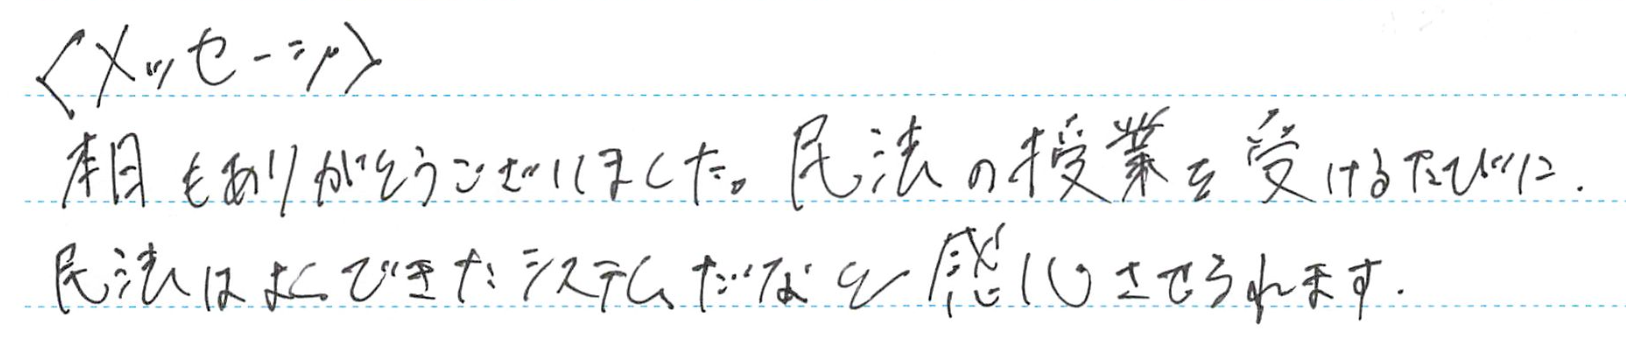 〈メッセージ〉
本日もありがとうございました。民法の授業を受けるたびに、
民法はよくできたシステムだなと感心させられます。